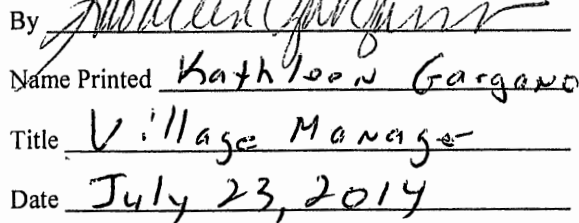 By
Name Printed Kathleen Gargano
Title Village Manager
Date July 23, 2014